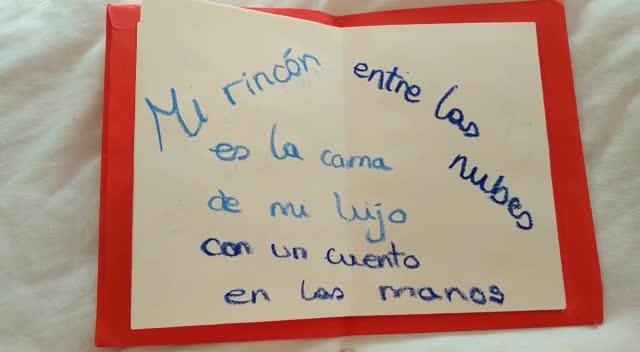 Mi rincón entre las nubes
es la cama
de mi hijo
con un cuento
en las manos